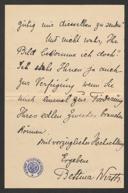 gütig mir dieselben zu senden
Und nicht wahr, Ihr
Bild bekomme ich doch?
Ich stehe Ihnen ja auch
zur Verfügung wenn Sie
mich einmal zur Förderung
Ihres edlen Zweckes brauchen
können.
Mit vorzüglicher Hochachtung
Ergebene
Bettina Wirth